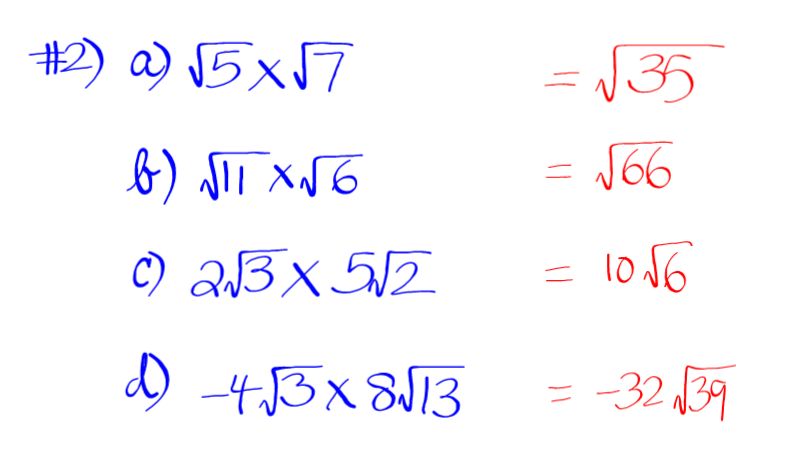 #2) a) √5 × √7 = √35
b) √11 × √6 = √66
c) 2√3 × 5√2 = 10√6
d) -4√3 × 8√13 = -32√39